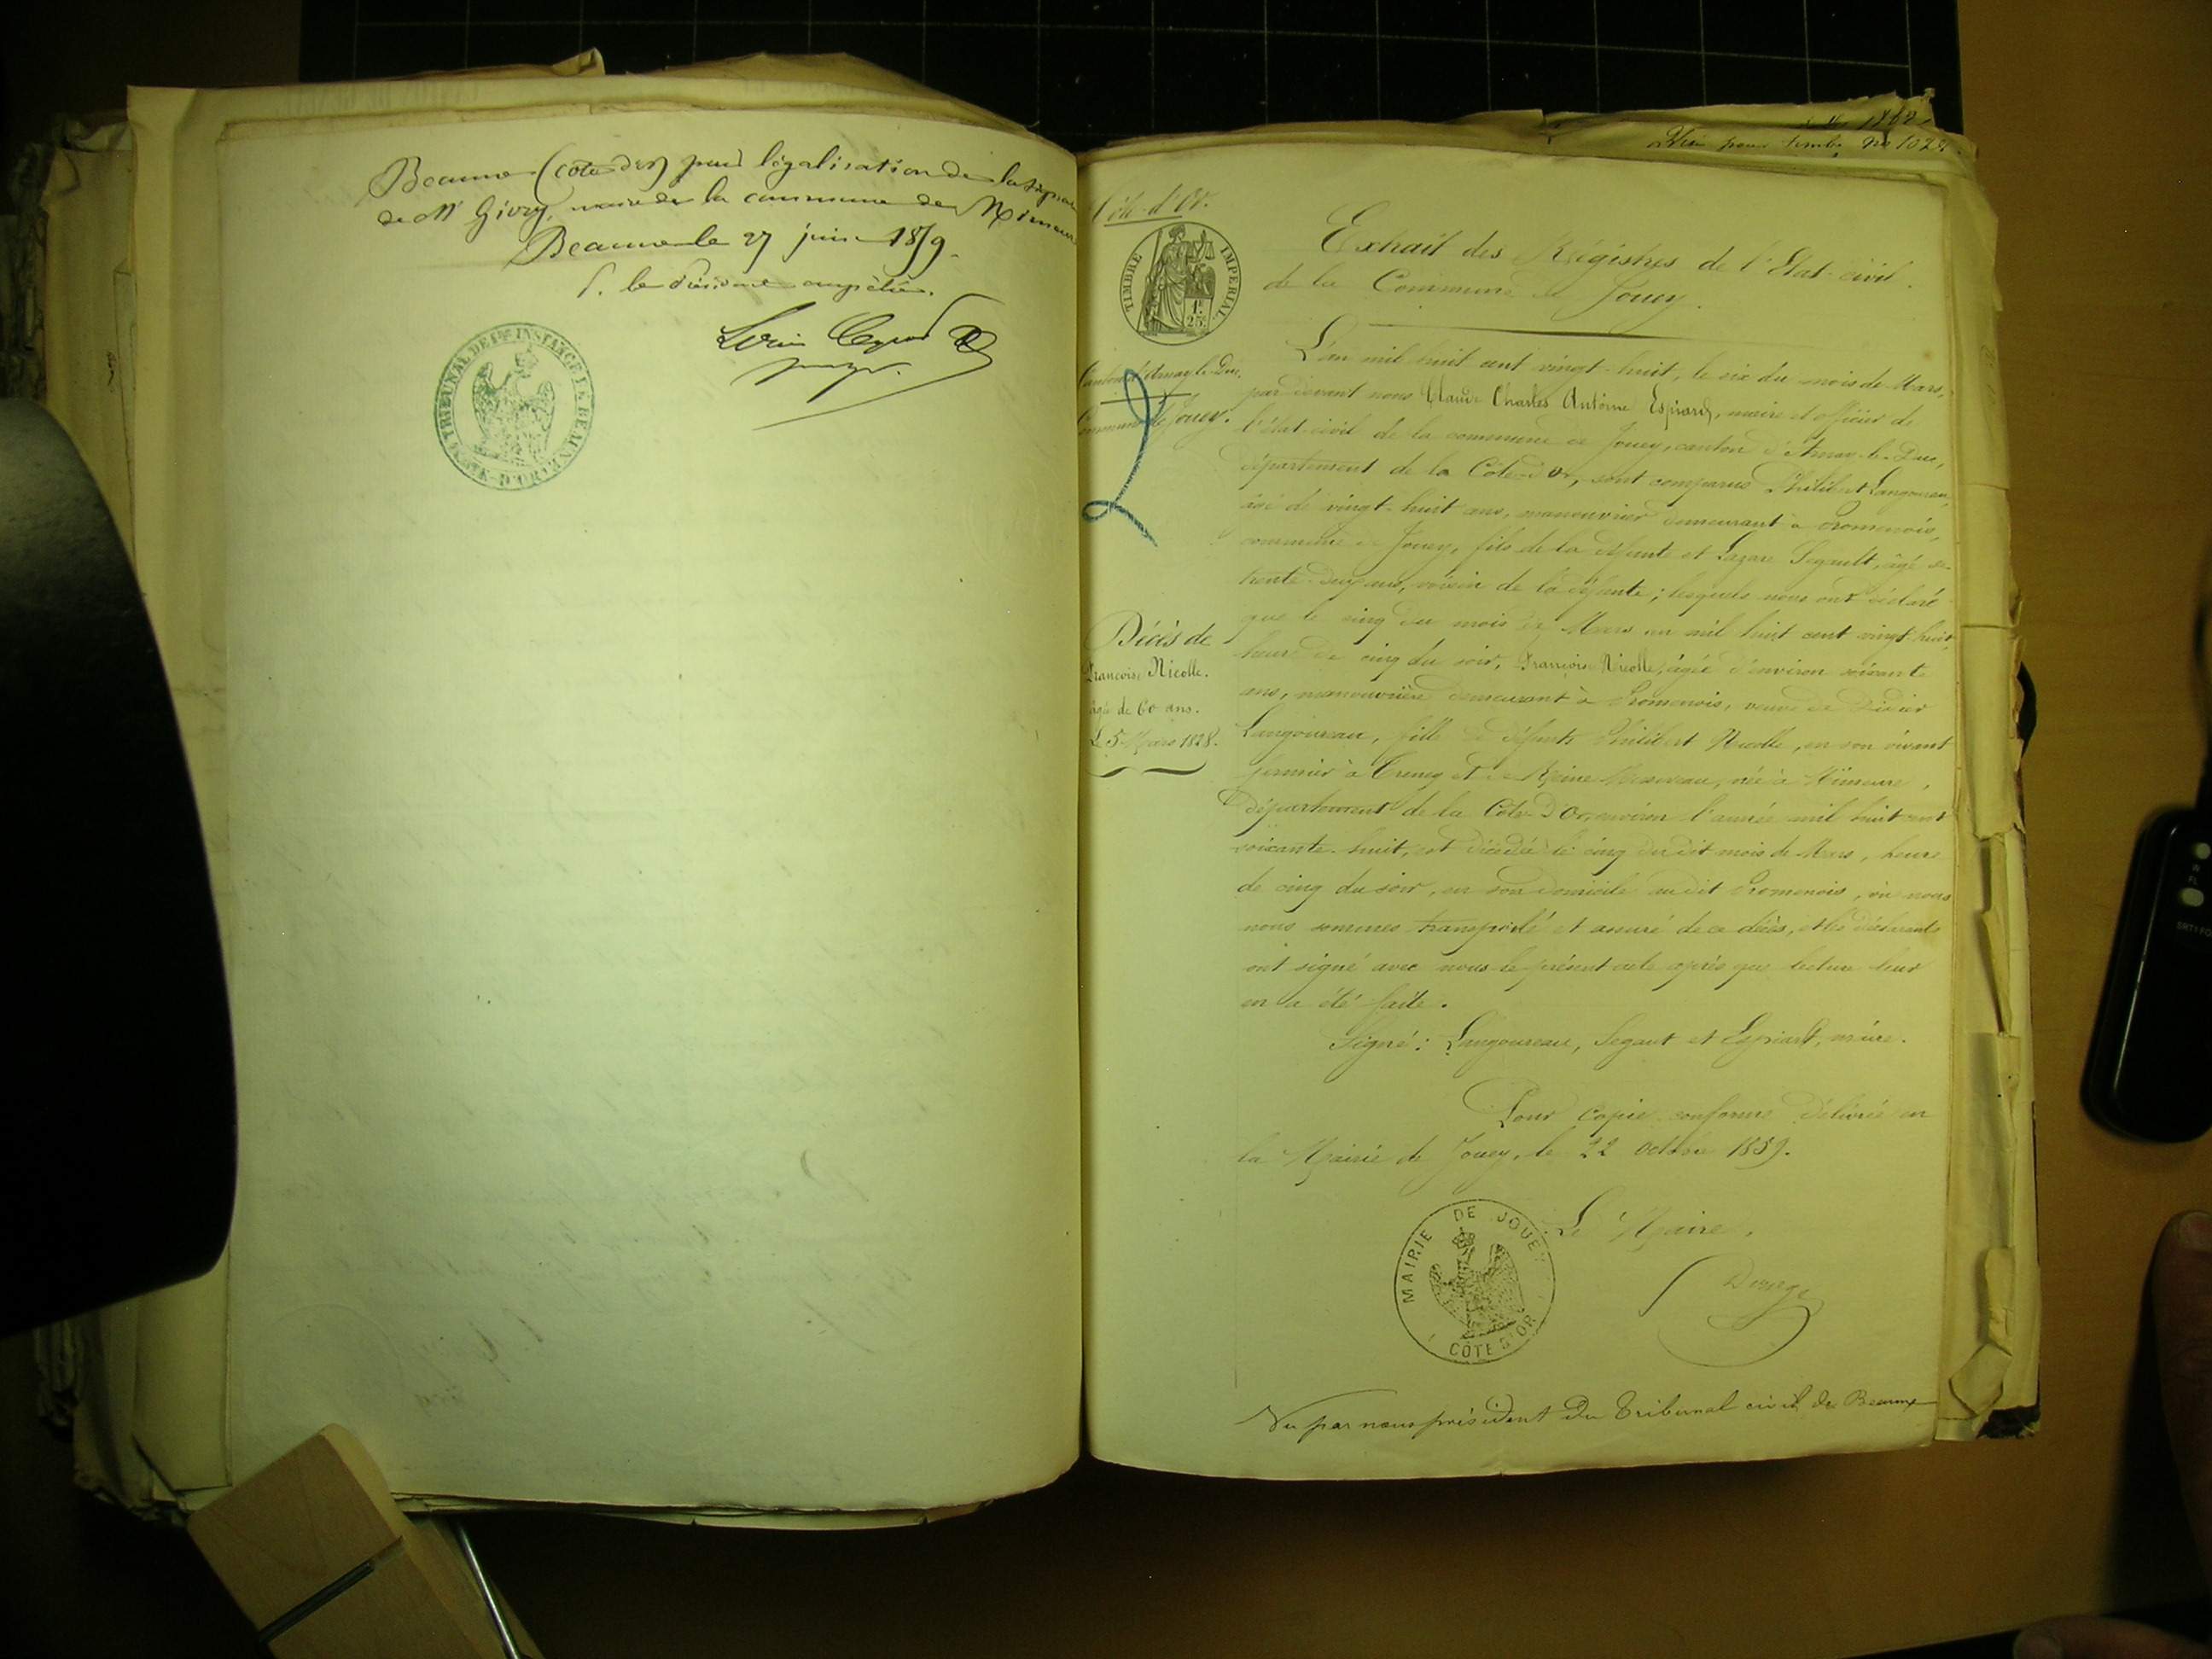 Beaune (côte d'or) pour légalisation de la signature
de Mr Givry, maire de la commune de Mimeure
Beaune le 27 juin 1859.
P. le Président empêché.
juge.
TRIBUNAL DE 1ère INSTANCE DE BEAUNE
CÔTE-D'OR
Visa pour timbre no 1024
Côte-d'Or.
TIMBRE IMPERIAL
1f. 25c.
Extrait des Régistres de l'Etat-civil
de la Commune de Jouey.
Canton d'Arnay-le-Duc.
Commune de Jouey.
2
L'an mil huit cent vingt-huit, le six du mois de Mars,
par devant nous Claude Charles Antoine Espiard, maire et officier de
l'état-civil de la commune de Jouey, canton d'Arnay-le-Duc,
département de la Côte-d'Or, sont comparus Philibert Langoureau,
âgé de vingt-huit ans, manouvrier demeurant à Promenois,
commune de Jouey, fils de la défunte et Lazare Segault, âgé de
trente-deux ans, voisin de la défunte ; lesquels nous ont déclaré
que le cinq du mois de Mars an mil huit cent vingt-huit,
heure de cinq du soir, Françoise Nicolle, âgée d'environ soixante
ans, manouvrière demeurant à Promenois, veuve de Didier
Langoureau, fille de défunts Philibert Nicolle, en son vivant
fermier à et de Reine née à Mimeure,
département de la Côte-D'Or, environ l'année mil huit cent
soixante-huit, est décédée le cinq du dit mois de Mars, heure
de cinq du soir, en son domicile audit Promenois, où nous
nous sommes transporté et assuré de ce décès, et les déclarants
ont signé avec nous le présent acte après que lecture leur
en a été faite.
Signé : Langoureau, Segaut et Espiard, maire.
Décès de
Françoise Nicolle.
âgée de 60 ans.
Le 5 Mars 1828.
Pour Copie conforme Délivrée en
la Mairie de Jouey, le 22 Octobre 1859.
Le Maire,
MAIRIE DE JOUEY
CÔTE D'OR
Vu par nous président du Tribunal civil de Beaune